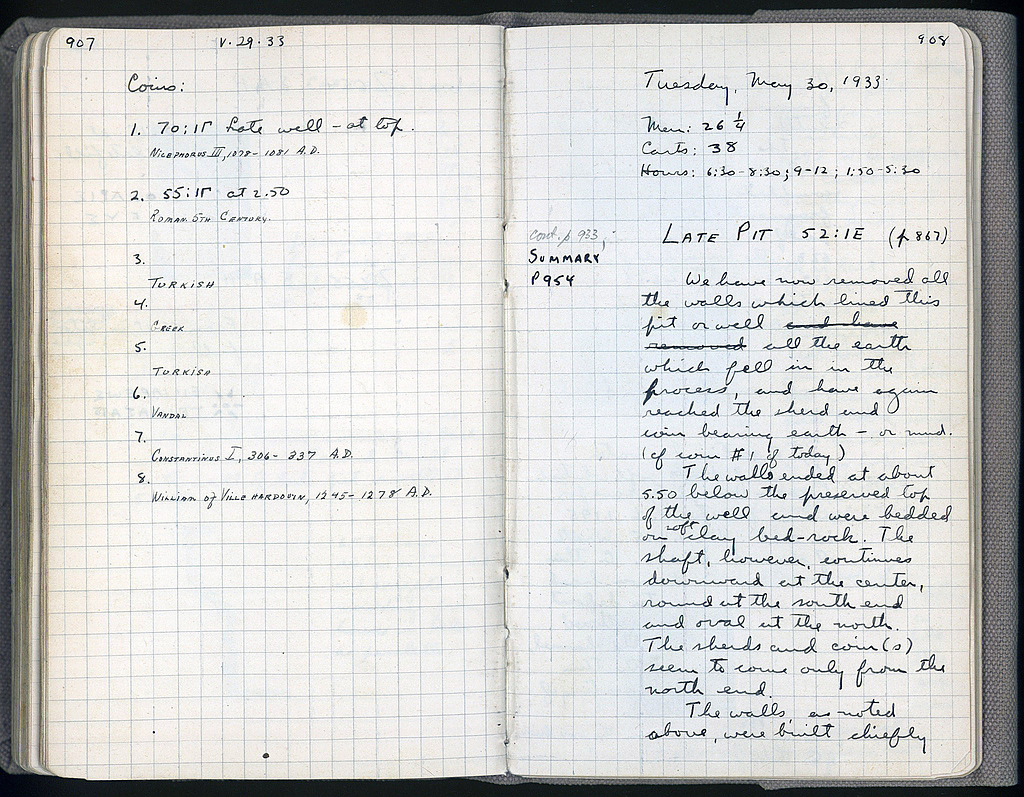 907
V.29.33
Coins:
1. 70:ΙΓ Late well - at top.
Nicephorus III, 1078-1081 A.D.
2. 55:ΙΓ at 2.50
Roman. 5th Century.
3.
Turkish
4.
Greek
5.
Turkish
6.
Vandal
7.
Constantinus I, 306-337 A.D.
8.
William of Villehardouin, 1245-1278 A.D.
908
Tuesday, May 30, 1933
Men: 26 1/4
Carts: 38
Hours: 6:30-8:30; 9-12; 1:50-5:30
cont. p 933;
Summary
P954
Late Pit 52:ΙΕ (p 867)
We have now removed all
the walls which lined this
pit or well and have
removed all the earth
which fell in in the
process, and have again
reached the sherd and
coin bearing earth - or mud.
(cf coin #1 of today)
The walls ended at about
5.50 below the preserved top
of the well and were bedded
on soft clay bed-rock. The
shaft, however, continues
downward at the center,
round at the south end
and oval at the north.
The sherds and coin(s)
seem to come only from the
north end.
The walls, as noted
above, were built chiefly